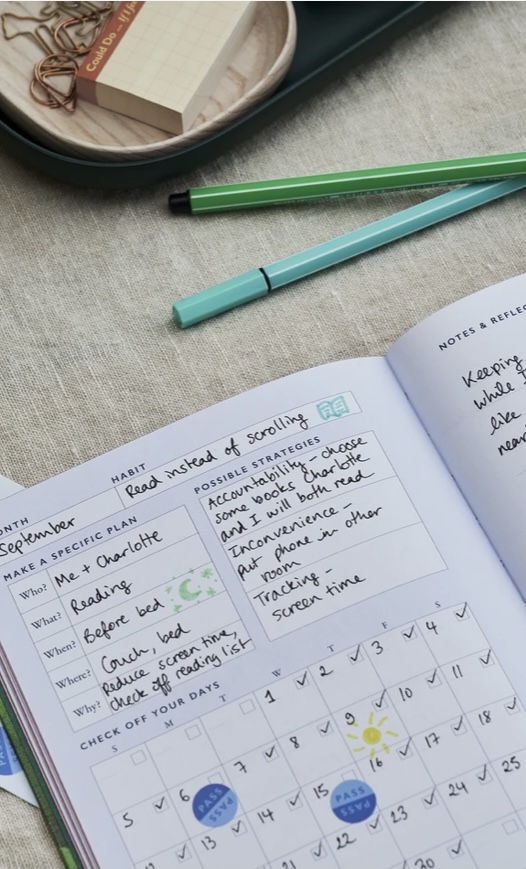 Could Do ...
NOTES &
Keeping
while
like
HABIT
Read instead of scrolling
September
MAKE A SPECIFIC PLAN
Who? Me + Charlotte
What? Reading
When? Before bed
Where? Couch, bed
Why? Reduce screen time,
check off reading list
POSSIBLE STRATEGIES
Accountability - choose
some books Charlotte
and I will both read
Inconvenience -
put phone in other
room
Tracking -
screen time
CHECK OFF YOUR DAYS
S M T W T F S
1 2 3 4
5 6 7 8 9 10 11
PASS
PASS
13 14 15 16 17 18
PASS
PASS
21 22 23 24 25
30